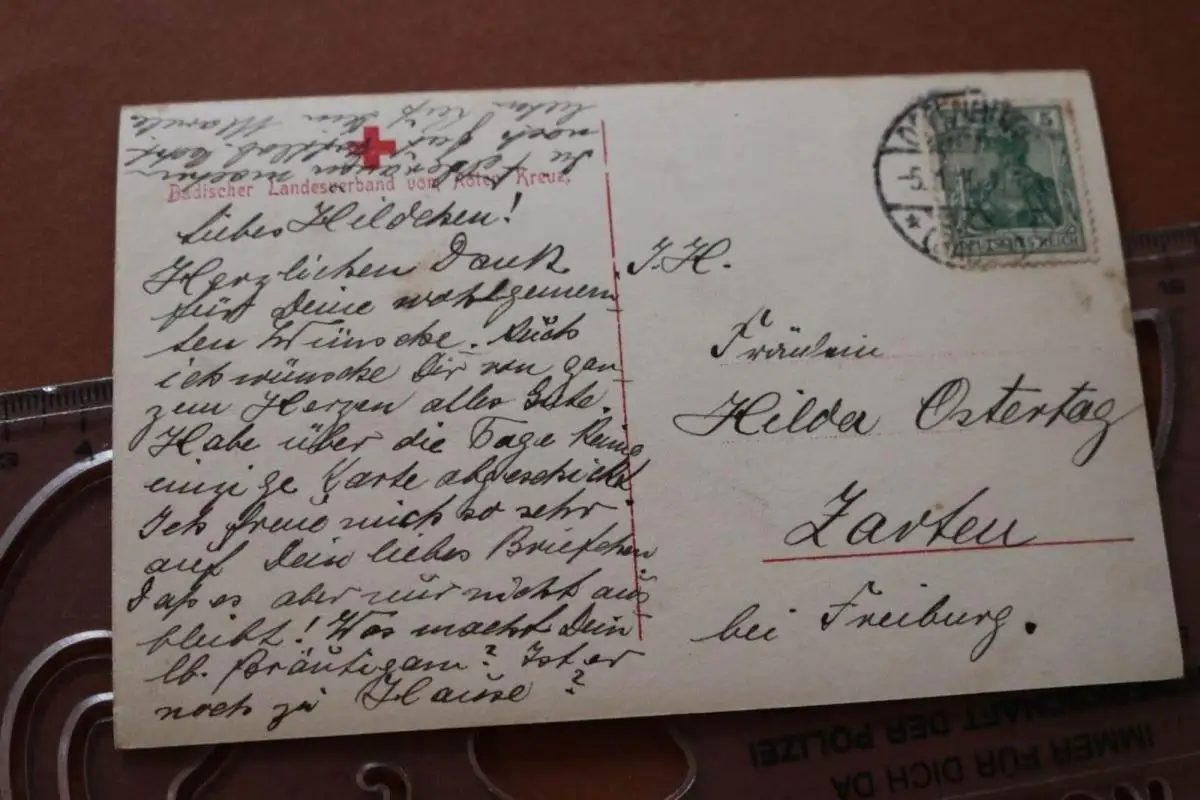 Badischer Landesverband vom Roten Kreuz.
Liebes Hildchen!
Herzlichen Dank
für Deine wohlgemein
ten Wünsche. Auch
ich wünsche Dir von gan
zem Herzen alles Gute.
Habe über die Tage keine
einzige Karte abgeschickt.
Ich freue mich so sehr
auf Dein liebes Briefchen
Daß es aber nur nicht aus
bleibt! Was macht Dein
lb. Bräutigam? Ist er
noch zu Hause?
I.H.
Fräulein
Hilda Ostertag
Zarten
bei Freiburg.
5
DEUTSCHES REICH
IMMER FÜR DICH DA
DER POLIZEI